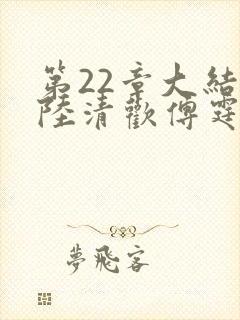 第22章大結
陸清歡傅霆
夢飛客